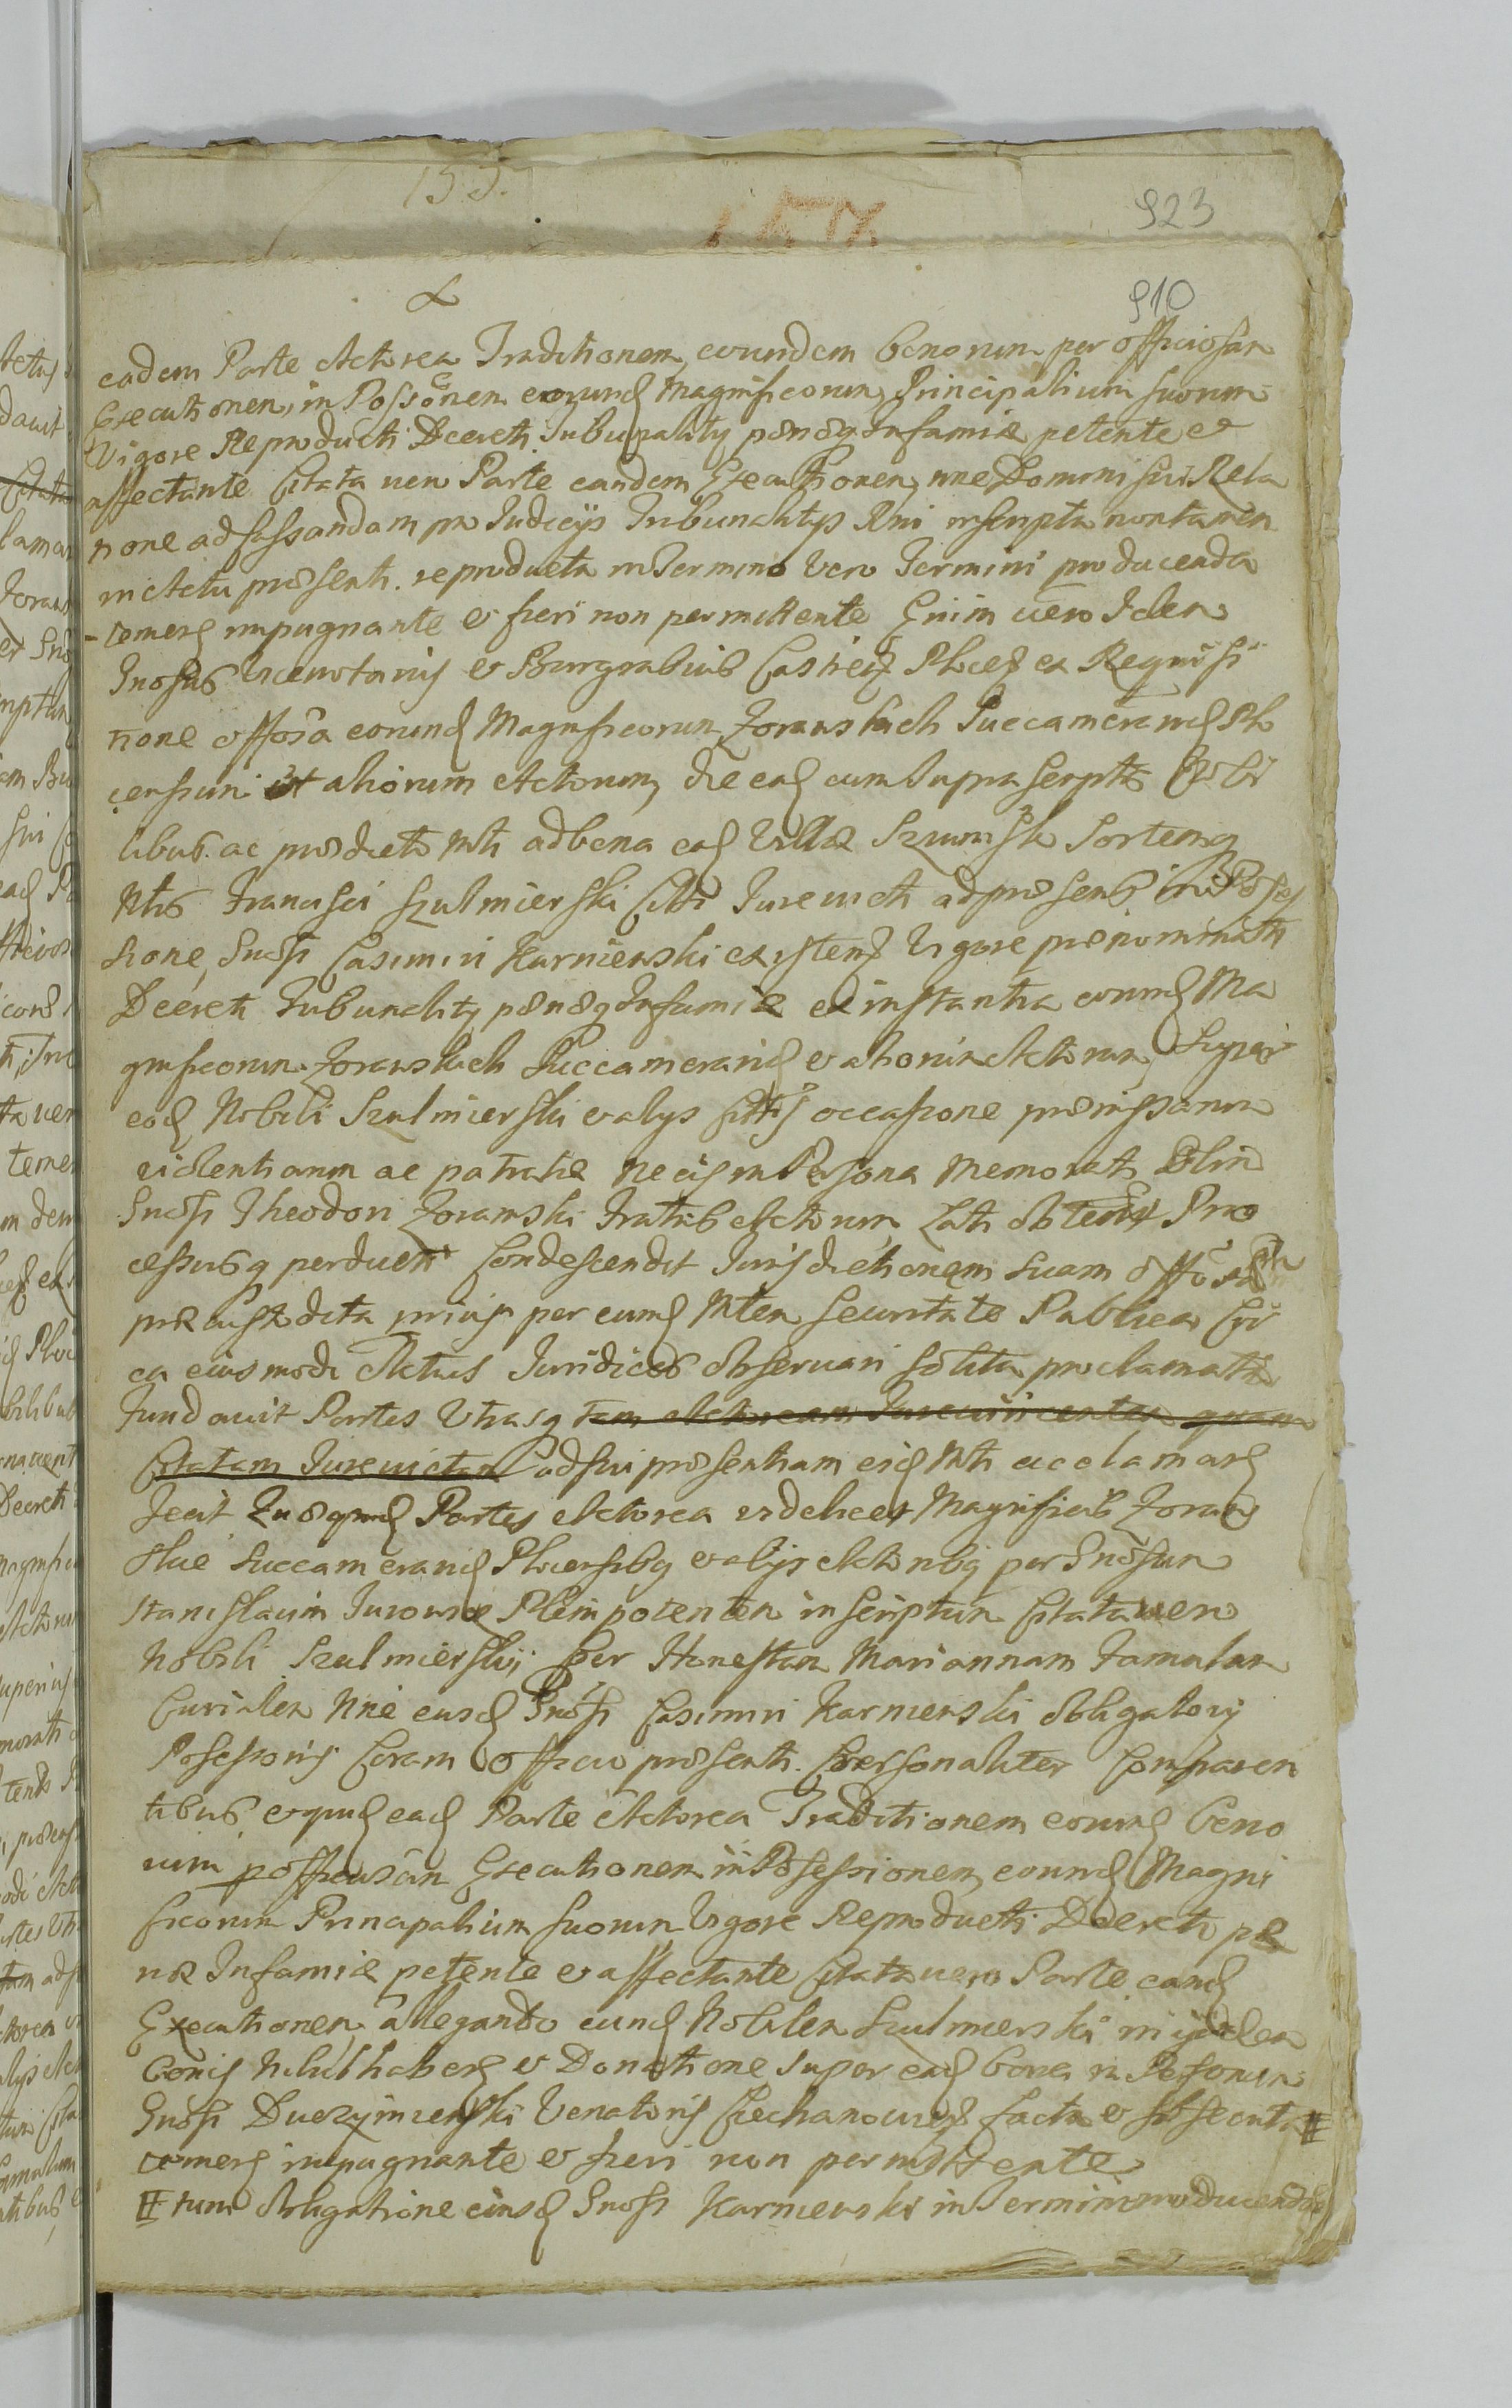 153.
923
910
eadem Parte Actorea Traditionem eorundem bonorum per officiosam
Executionem, in Possonem eorund Magnificorum Principalium suorum
Vigore Reproducti Decreti Tribunality pænæq Infamiæ petente et
affectante Citata vero Parte eandem Executionem, nne Domini sui Rela
tione ad Cassandam pro Judicijs Tribunalitys Rni inscripta non tamen
in Actu præsenti reproducta in Termino vero Termini producenda
temere impugnante et fieri non permittente Enim vero Idem
Gnosus Vicenotarius et Burgrabius Castren Plocen ex Requisi
tione offosa eorund Magnificorum Zorawskich Succamerarid Plo
censium et aliorum Actorum, die ead cum suprascriptis Nobi
libus ac prædicto Mli ad bona ead Villæ Szumsk Sortemq
Nlis Francisci Szulmierski Citti Jurevicti ad præsens in Posses
sione, Gnosi Casimiri Karniewski existen Vigore prænominati
Decreti Tribunality pænæq Infamiæ ad instantia eorund Ma
gnificorum Zorawskich Succamerarid et aliorum Actorum, Super
eod Nobili Szulmierski et alys Cittis occasione præmissarum
violentiarum ac patratæ Necis in Persona Memorati Olim
Gnosi Theodori Zorawski Fratris Actorum Lati obtenti Pro
cessusq perducti Condescendit Jurisdictionem suam
præcustodita prius per eund Mlem Securitate Publica Cir
ca eiusmodi Actus Juridicos observari solita proclamata
Fundavit Partes Utrasq tam Actoream Jurevincentem quam
Citatam Jurevictam ad sui præsentiam eid Mli acclamare
Fecit Quæquid Partes Actorea videlicet Magnificis Zoraw
skie Succamerarid Plocensibq et alys Actoribq per Gnosum
Stanislaum Jurowsz Plenipotentem inscriptum Citata vero
Nobili Szulmierskij per Honestam Mariannam Famulam
Curialem Nne eiusd Gnosi Casimiri Karniewski obligatorij
Possessoris Coram officio præsenti Personaliter Comparen
tibus, et quid ead Parte Actorea Traditionem eorund bono
rum p officiosam Executionem in Possessionem eorund Magni
ficorum Principalium suorum Vigore Reproducti Decreti pæ
næ Infamiæ petente et affectante Citata vero Parte eand
Executionem, allegando eund Nobilem Szulmierski in ijsdem
bonis Nihil habere et Donatione super ead bona in Personam
Gnosi Duczyminski Venatoris Ciechanovien facta et subsecuta #
temere impugnante et fieri non permittente
# tum obligatione eiusd Gnosi Karniewski in Termino producenda